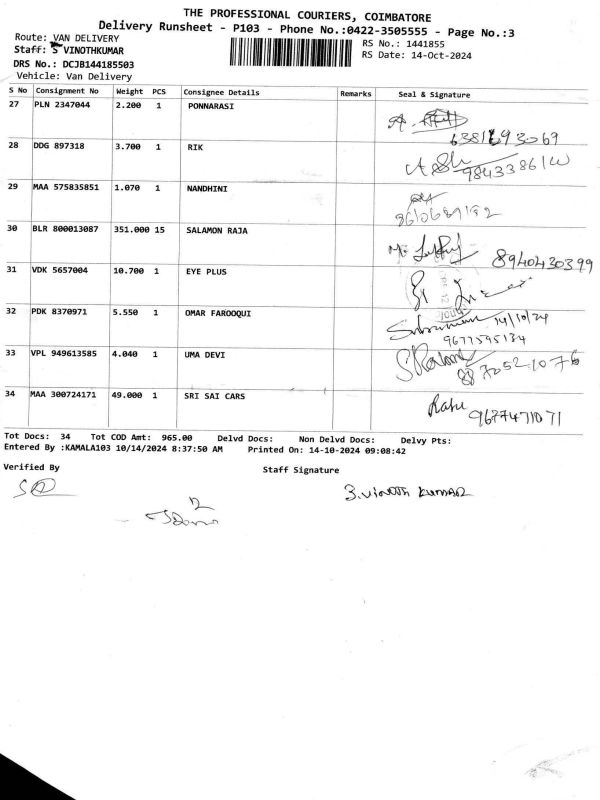 THE PROFESSIONAL COURIERS, COIMBATORE
Delivery Runsheet - P103 - Phone No.:0422-3505555 - Page No.:3
Route: VAN DELIVERY
RS No.: 1441855
Staff: S VINOTHKUMAR
RS Date: 14-Oct-2024
DRS No.: DCJB144185503
Vehicle: Van Delivery
S No Consignment No Weight PCS Consignee Details Remarks Seal & Signature
27 PLN 2347044 2.200 1 PONNARASI
6381693069
28 DDG 897318 3.700 1 RIK
29 MAA 575835851 1.070 1 NANDHINI
30 BLR 800013087 351.000 15 SALAMON RAJA
8940430399
31 VDK 5657004 10.700 1 EYE PLUS
32 PDK 8370971 5.550 1 OMAR FAROOQUI
14/10/24
9677595134
33 VPL 949613585 4.040 1 UMA DEVI
34 MAA 300724171 49.000 1 SRI SAI CARS
9677471071
Tot Docs: 34 Tot COD Amt: 965.00 Delvd Docs: Non Delvd Docs: Delvy Pts:
Entered By :KAMALA103 10/14/2024 8:37:50 AM Printed On: 14-10-2024 09:08:42
Verified By Staff Signature
3.Vinoth Kumar